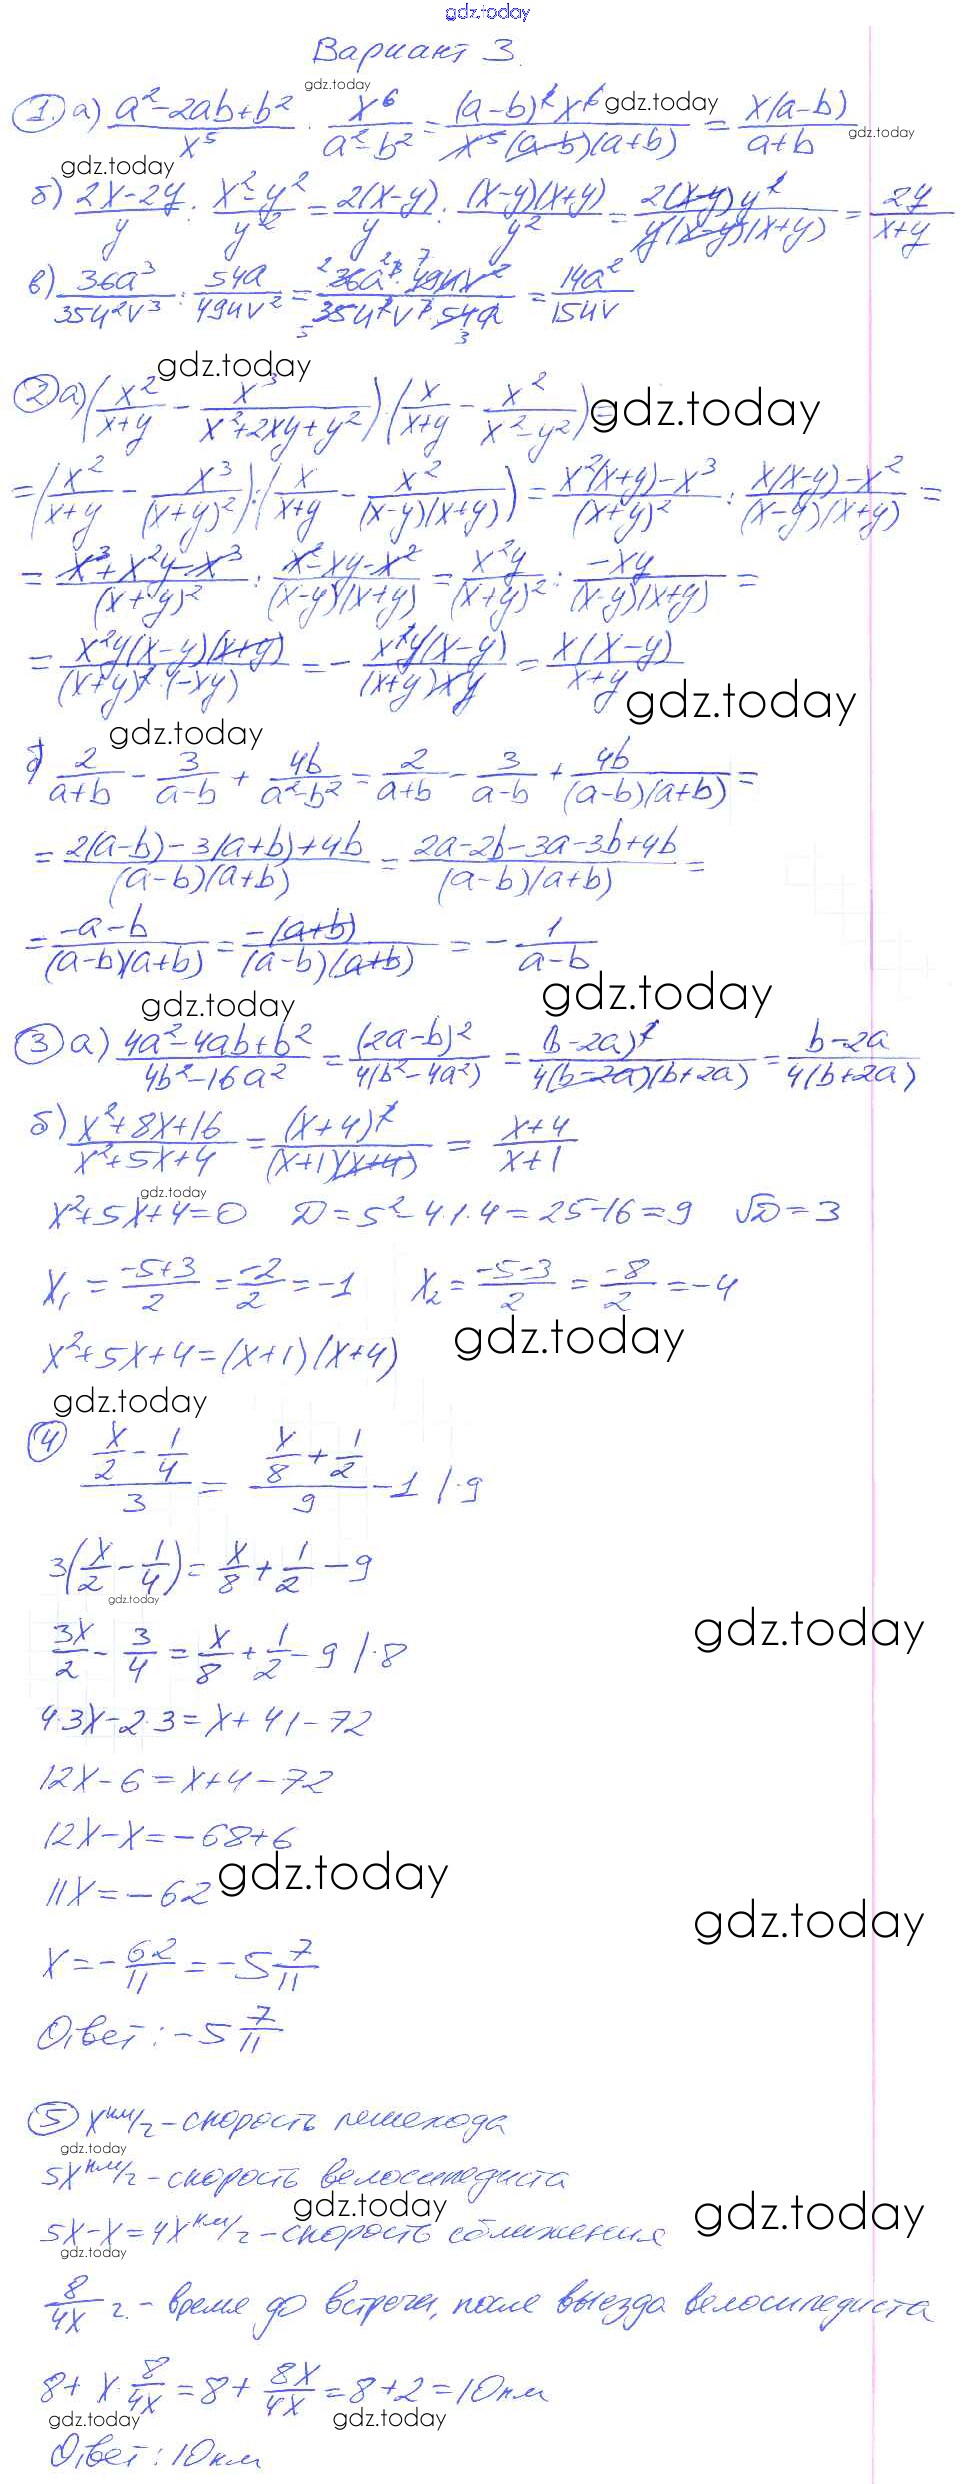 gdz.today
Вариант 3.
gdz.today
1. а) (a²-2ab+b²)/x⁵ · x⁶/(a²-b²) = (a-b)²x⁶/(x⁵(a-b)(a+b)) = x(a-b)/(a+b)
gdz.today
gdz.today
gdz.today
б) (2x-2y)/y : (x²-y²)/y² = 2(x-y)/y : (x-y)(x+y)/y² = 2(x-y)y²/(y(x-y)(x+y)) = 2y/(x+y)
в) 36a³/35u²v³ : 54a/49uv² = 36a³·49uv²/(35u²v³·54a) = 14a²/15uv
gdz.today
2 а) (x²/(x+y) - x³/(x²+2xy+y²)) : (x/(x+y) - x²/(x²-y²)) =
gdz.today
= (x²/(x+y) - x³/(x+y)²) : (x/(x+y) - x²/((x-y)(x+y))) = (x²(x+y)-x³)/(x+y)² : (x(x-y)-x²)/((x-y)(x+y)) =
= (x³+x²y-x³)/(x+y)² : (x²-xy-x²)/((x-y)(x+y)) = x²y/(x+y)² : -xy/((x-y)(x+y)) =
= x²y(x-y)(x+y)/((x+y)²·(-xy)) = - x²y(x-y)/((x+y)xy) = x(x-y)/(x+y)
gdz.today
gdz.today
б) 2/(a+b) - 3/(a-b) + 4b/(a²-b²) = 2/(a+b) - 3/(a-b) + 4b/((a-b)(a+b)) =
= (2(a-b)-3(a+b)+4b)/((a-b)(a+b)) = (2a-2b-3a-3b+4b)/((a-b)(a+b)) =
= (-a-b)/((a-b)(a+b)) = -(a+b)/((a-b)(a+b)) = - 1/(a-b)
gdz.today
gdz.today
3 а) (4a²-4ab+b²)/(4b²-16a²) = (2a-b)²/(4(b²-4a²)) = (b-2a)²/(4(b-2a)(b+2a)) = (b-2a)/(4(b+2a))
б) (x²+8x+16)/(x²+5x+4) = (x+4)²/((x+1)(x+4)) = (x+4)/(x+1)
gdz.today
x²+5x+4=0 D=5²-4·1·4=25-16=9 √D=3
x₁ = (-5+3)/2 = -2/2 = -1 x₂ = (-5-3)/2 = -8/2 = -4
x²+5x+4=(x+1)(x+4)
gdz.today
gdz.today
4 (x/2 - 1/4)/3 = (x/8 + 1/2)/9 - 1 |·9
3(x/2 - 1/4) = x/8 + 1/2 - 9
gdz.today
3x/2 - 3/4 = x/8 + 1/2 - 9 |·8
gdz.today
4·3x-2·3=x+41-72
12x-6=x+4-72
12x-x=-68+6
gdz.today
11x=-62
gdz.today
x=-62/11=-5 7/11
Ответ: -5 7/11
5 x км/ч - скорость пешехода
gdz.today
5x км/ч - скорость велосипедиста
gdz.today
gdz.today
5x-x=4x км/ч - скорость сближения
gdz.today
8/4x ч. - время до встречи, после выезда велосипедиста
8+ x·8/4x = 8 + 8x/4x = 8+2=10км
gdz.today
gdz.today
Ответ: 10км